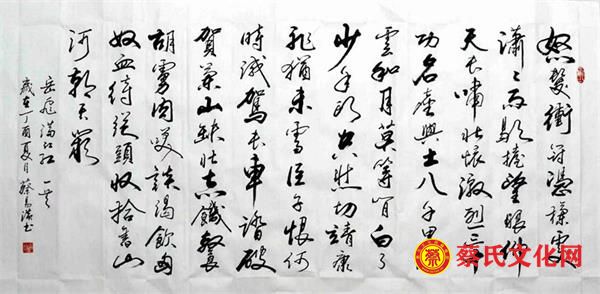 怒髮衝冠憑欄處
瀟瀟雨歇擡望眼仰
天長嘯壯懷激烈三十
功名塵與土八千里
雲和月莫等閒白了
少年頭空悲切靖康
恥猶未雪臣子恨何
時滅駕長車踏破
賀蘭山缺壯志飢餐
胡虜肉笑談渴飲匈
奴血待從頭收拾舊山
河朝天闕
岳飛滿江红一首
歲在丁酉夏月蔡書
蔡氏文化网